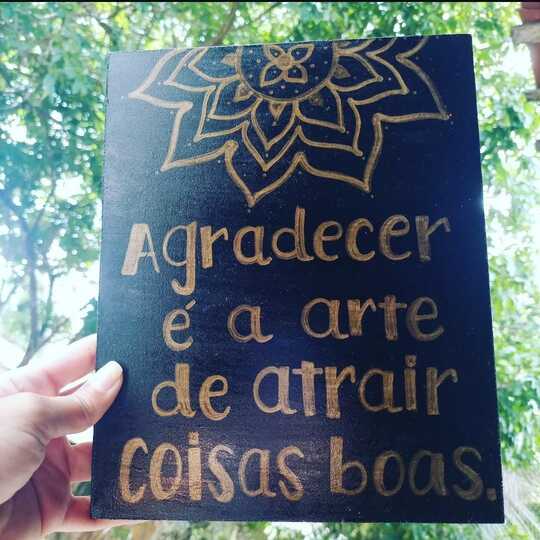 Agradecer
é a arte
de atrair
coisas boas.